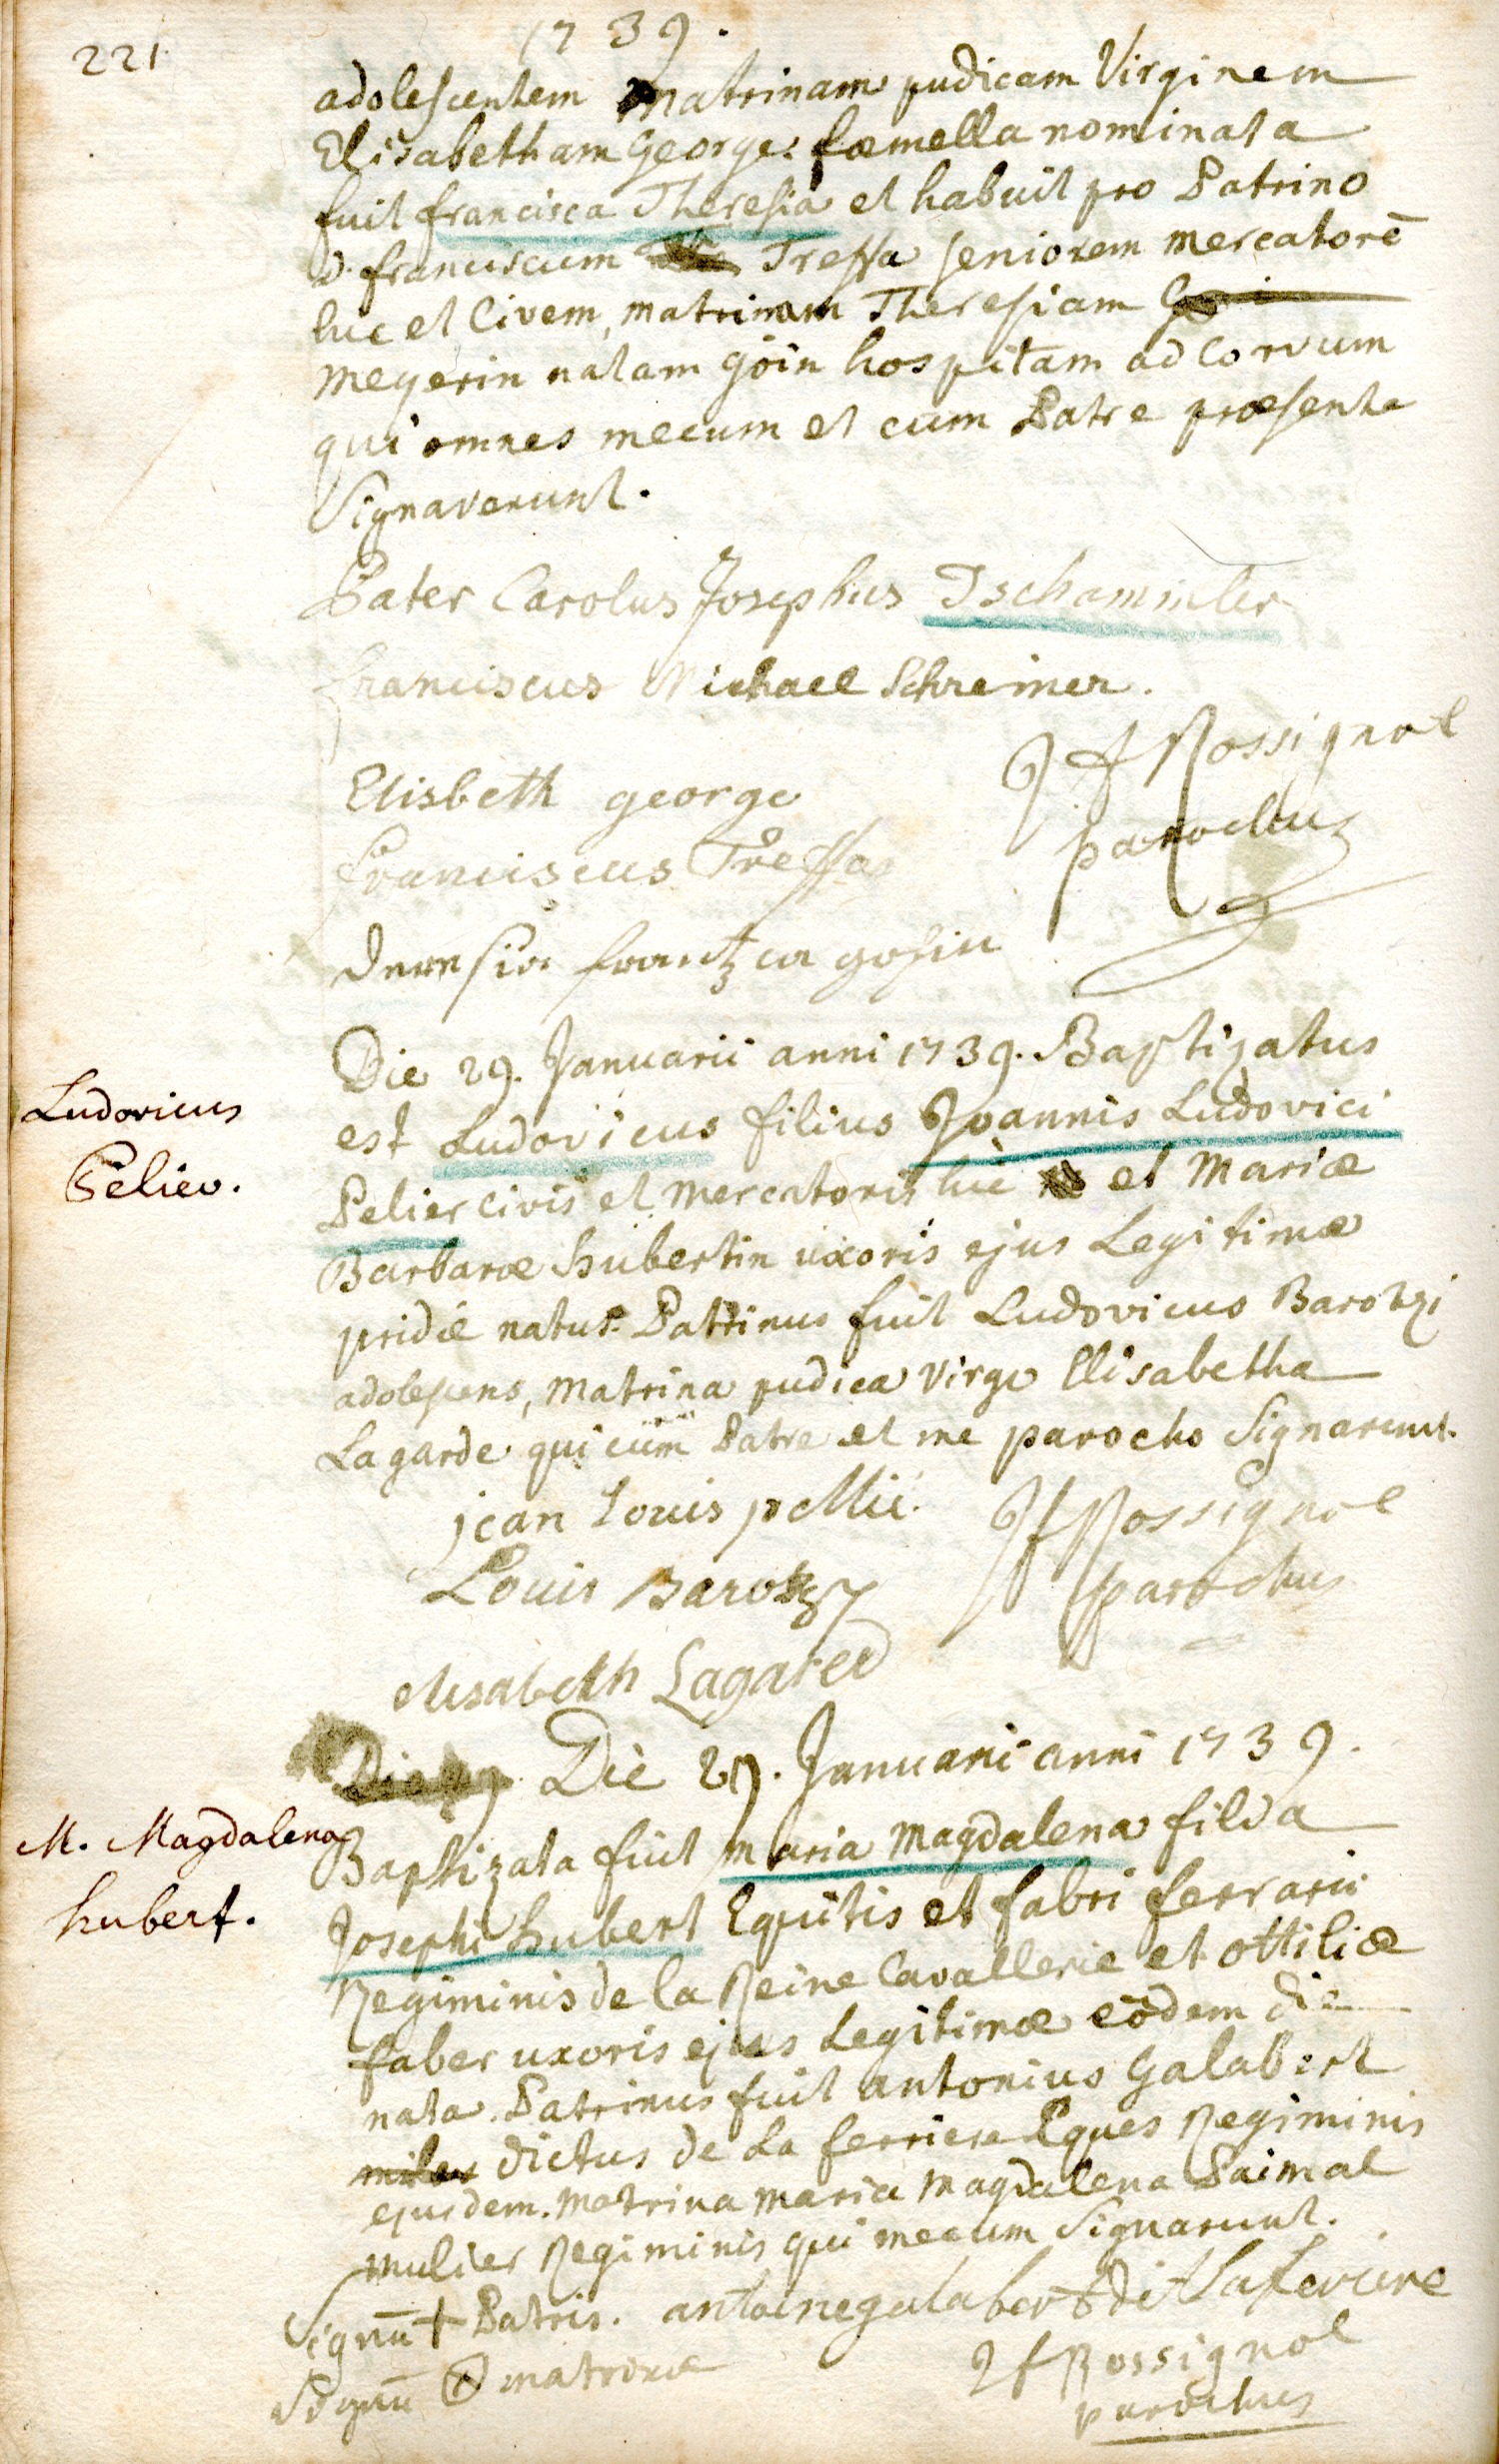 221
1739.
adolescentem matrinam pudicam Virginem
Elisabetham George. foemella nominata
fuit francisca Theresia et habuit pro Patrino
D. franciscum Treffa seniorem mercatorē
huc et Civem, matrinam Theresiam
Meyerin natam goin hospitam ad Corvum
qui omnes mecum et cum Patre præsente
Signaverunt.
Pater Carolus Josephus Tschammler
franciscus Michael Schreiner.
J f Rossignol
parochus
Elisbeth george
franciscus Treffa
frantzca gosin
Die 29. Januarii anni 1739. Baptizatus
Ludovicus
est Ludovicus filius Joannis Ludovici
Pelier.
Pelier civis et Mercatoris hic et Mariæ
Barbaræ hubertin uxoris ejus Legitimæ
pridie natus. Patrinus fuit Ludovicus Barotzi
adolescens, Matrina pudica Virgo Elisabetha
Lagarde qui cum Patre et me parocho Signarunt.
jean Louis pellie. J f Rossignol
Louis Barotzy parochus
elisabeth Lagarde
Die 29. Januarii anni 1739.
M. Magdalena
Baptizata fuit Maria Magdalena filia
hubert.
Josephi hubert Equitis et fabri ferrarii
Regiminis de la Reine Cavallerie et ottiliæ
faber uxoris ejus Legitimæ eôdem die
nata. Patrinus fuit antonius Galabert
miles dictus de La ferriere Eques Regiminis
ejusdem. Matrina maria Magdalena Paimal
mulier Regiminis qui mecum Signarunt.
Signū + Patris. antoine galabert dit Laferiere
Signū + matrinæ J f Rossignol
parochus